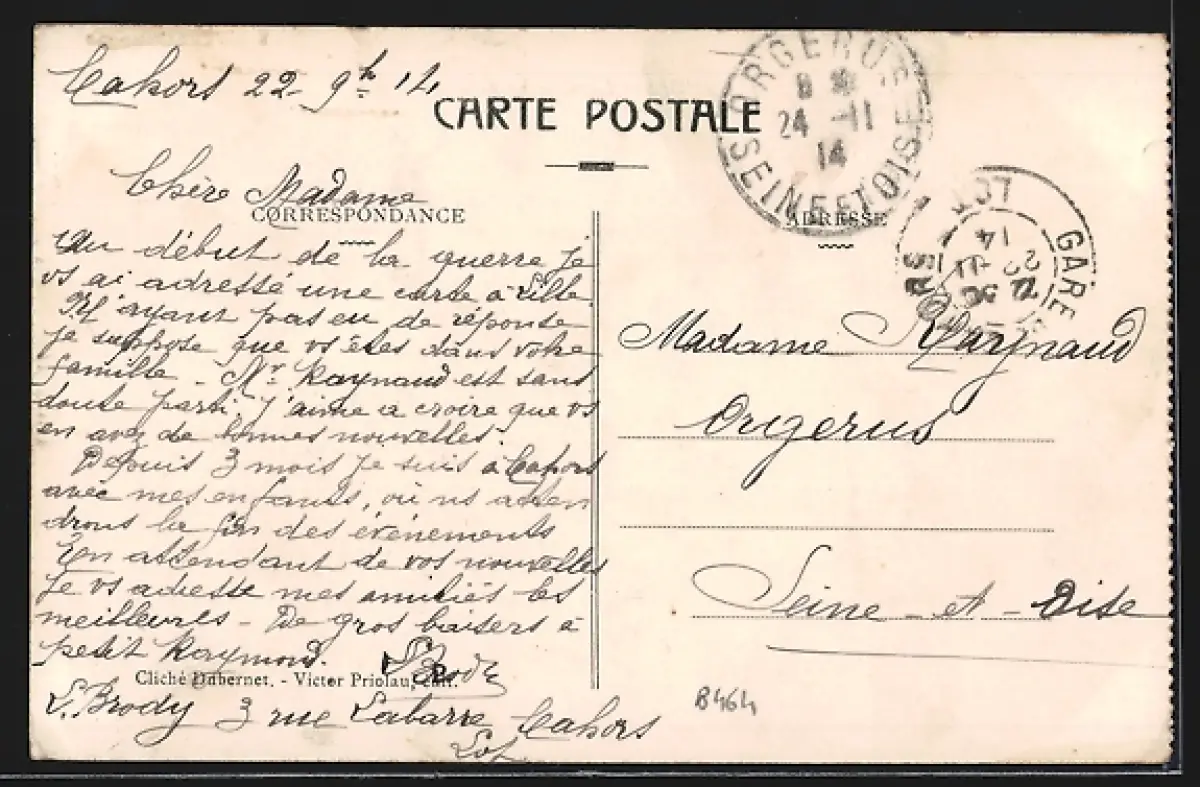 Cahors 22 9h 14
CARTE POSTALE
Chère Madame
CORRESPONDANCE
Au début de la guerre je
vs ai adressé une carte à Lille.
N'ayant pas eu de réponse
je suppose que vs êtes dans votre
famille - Mr Raynaud est sans
doute parti. J'aime à croire que vs
en avez de bonnes nouvelles.
Depuis 3 mois je suis à Cahors
avec mes enfants, où ns atten
drons la fin des évènements
En attendant de vos nouvelles
je vs adresse mes amitiés les
meilleures - De gros baisers à
petit Raymond. L Brody
Cliché Dubernet. - Victor Priolau, édit.
L. Brody 3 rue Labarre Cahors
Lot
ORGERUS
8
24 -11
14
SEINE ET OISE
ADRESSE
GARE
LOT
22
14
Madame Raynaud
Orgerus
Seine - et - Oise
B464